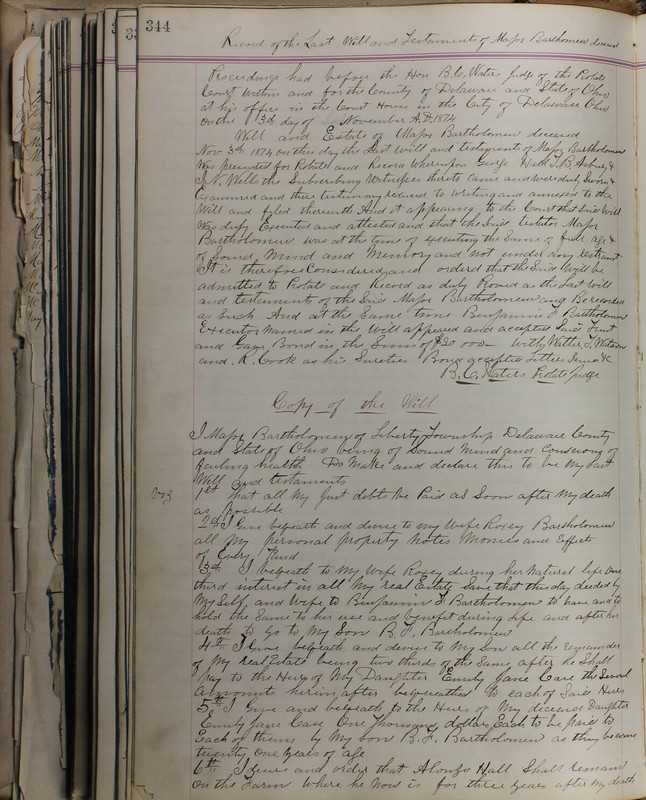 344
Record of the Last Will and Testaments of Major Bartholomew deceased
Proceedings had before the Hon B.C. Waters Judge of the Probate
Court within and for the County of Delaware and State of Ohio
at his office in the Court House in the City of Delaware Ohio
on the 3d day of November A.D. 1874
Will and Estate of Major Bartholomew deceased
Nov 3rd 1874 on this day the Last Will and testaments of Major Bartholomew
was presented for Probate and Record Whereupon George Hall T. B.
the Subscribing Witnesses thereto Came and were duly Sworn &
Examined and their testimony reduced to writing and annexed to the
Will and filed therewith And it appearing to the Court that Said Will
was duly Executed and attested and that the Said testator Major
Bartholomew was at the time of executing the Same of full age &
of Sound Mind and Memory and not under any restraint
It is therefore Considered and ordered that the Said Will be
admitted to Probate and Record as duly Proved as the Last Will
and testaments of the Said Major Bartholomew and Be recorded
as Such And at the Same time Benjamin F Bartholomew
Executor Named in the Will appeared and accepted Said Trust
and Gave Bond in the Sum of $20 000 With Watson
and R. Cook as his Sureties Bond accepted Letters Issued &c
B. C. Waters Probate Judge
Copy of the Will
I Major Bartholomew of Liberty Township Delaware County
and State of Ohio being of Sound Mind and Conscious of
failing health Do Make and declare this to be My Last
Will and testaments
Viz 1st That all My Just debts be Paid as Soon after My death
as possible
2d I Give beqeath and devise to my Wife Roxey Bartholomew
all My personal property Notes Monies and Effect
of Every Kind
3rd I beqeath to My Wife Roxey during her Natural life one
third interest in all My real Estate Save that this day deeded by
My Self and Wife to Benjamin F Bartholomew to have and to
hold the Same to her use and benefit during life and after her
death to Go to My Son B. F. Bartholomew
4th I Give beqeath and devise to My Son all the remainder
of My real Estate being two thirds of the Same after he Shall
Pay to the Heirs of My Daughter Emily Jane Case the Several
Amounts herein after beqeathed to each of Said Heirs
5th I Give and beqeath to the Heirs of My deceased Daughter
Emily Jane Case One Thousand dollars Each to be paid to
Each of them by My Son B. F. Bartholomew as they become
twenty one years of age
6th I desire and order that Alonzo Hall Shall remain
on the Farm where he Now is for three years after My death